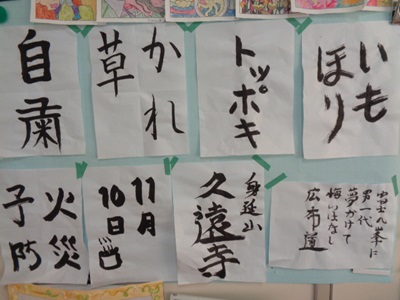 自粛
かれ
草
トッポキ
いも
ほり
火災
予防
11月
10日
身延山
久遠寺
男一代
夢かけて
悔いはなし
広布道